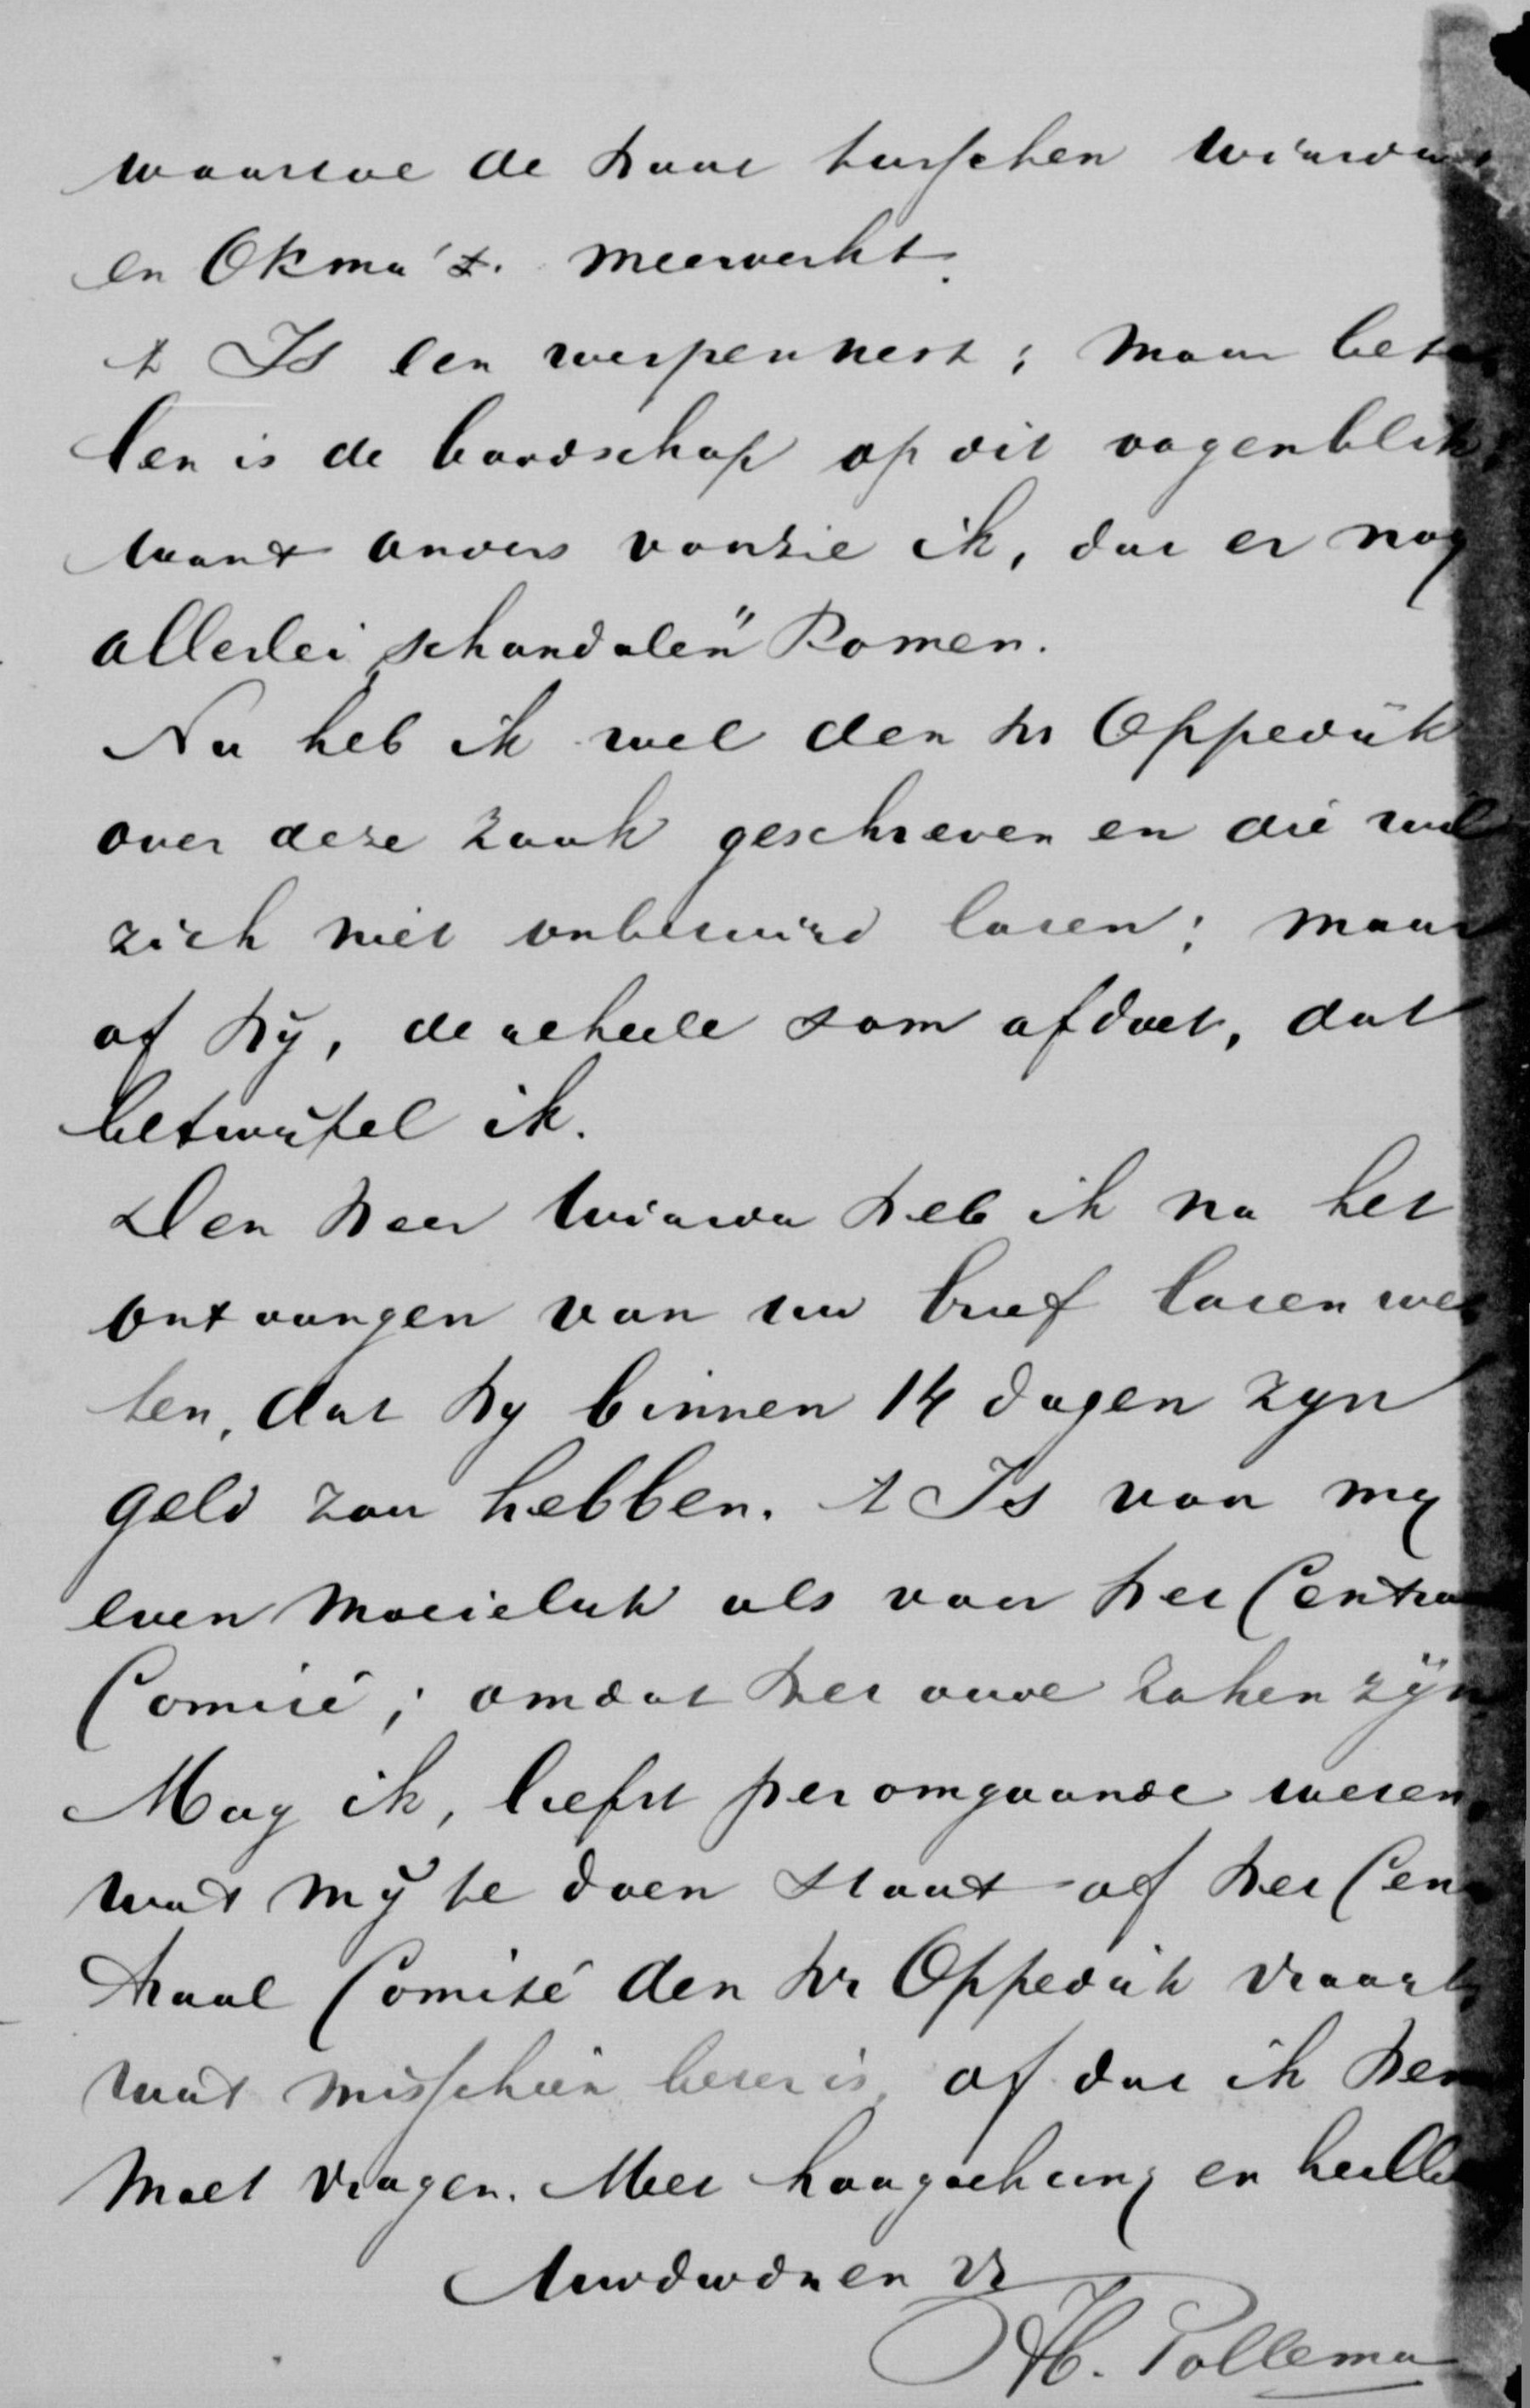 waartoe de haat tusschen Wiarda
en Okma 't. meewerkt.
t Is een wespennest; maar beta
len is de boodschap op dit oogenblik;
want anders voorzie ik, dat er nog
allerlei „schandalen" komen.
Nu heb ik wel den hr Oppedijk
over deze zaak geschreven en die wil
zich niet onbetuigd laten; maar
of hij, de geheele som afdoet, dat
betwijfel ik.
Den heer Wiarda heb ik na het
ontvangen van uw brief laten we
ten, dat hy binnen 14 dagen zyn
geld zou hebben. t Is voor my
even moeielijk als voor het Centraal
Comité; omdat het oude zaken zijn
Mag ik, liefst per omgaande weten,
wat mij te doen staat of het Cen
traal Comité den hr Oppedijk vraagt,
wat misschien beter is, of dat ik hem
moet vragen. Met hoogachting en heilbe
Uwdwdnen vr
H. Pollema